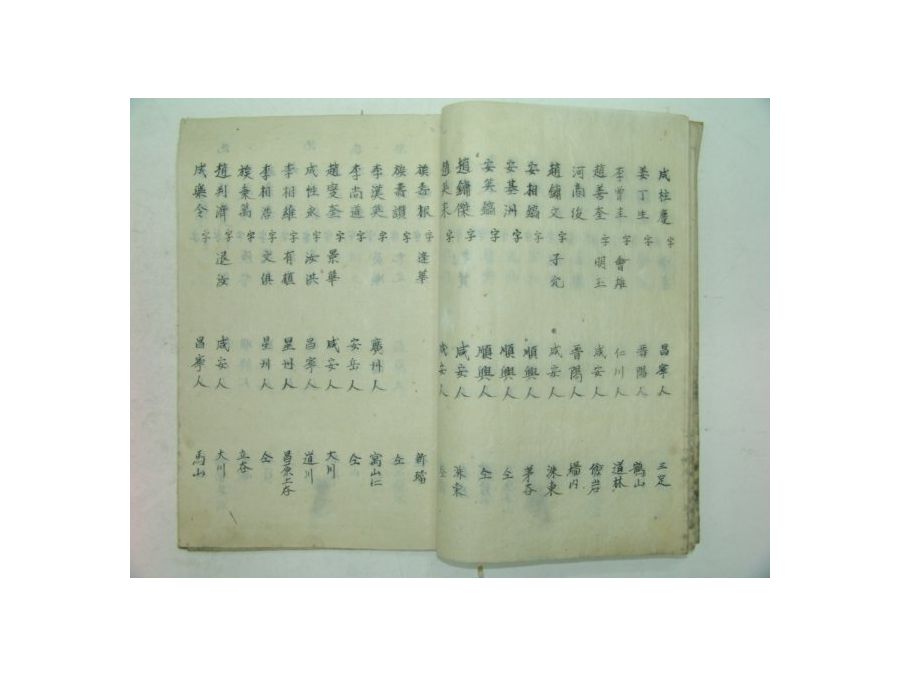 成柱慶 字 昌寧人 三足
姜丁生 字 晋陽人 鶴山
李曾圭 字 會雄 仁川人 道林
趙善奎 字 明玉 咸安人 儉岩
河萬俊 字 晋陽人
趙鏞文 字 子允 咸安人 洙東
安相鎬 字 順興人 茅谷
安基洲 字 順興人 仝
安英鎬 字 順興人 仝
趙鏞傑 字 咸安人 洙東
趙英來 字 咸安人 仝
壽根 字 達華
壽讚 字 仝
李漢英 字 廣州人 富山仁
李尚蓮 字 安岳人 仝
趙燮奎 字 景華 咸安人 大川
成性永 字 汝洪 昌寧人 道川
李相維 字 有植 星州人 昌原上谷
李相浩 字 文俱 星州人 仝
秉萬 字 立谷
趙判濟 字 退汝 咸安人 大川
成樂令 字 昌寧人 馬山